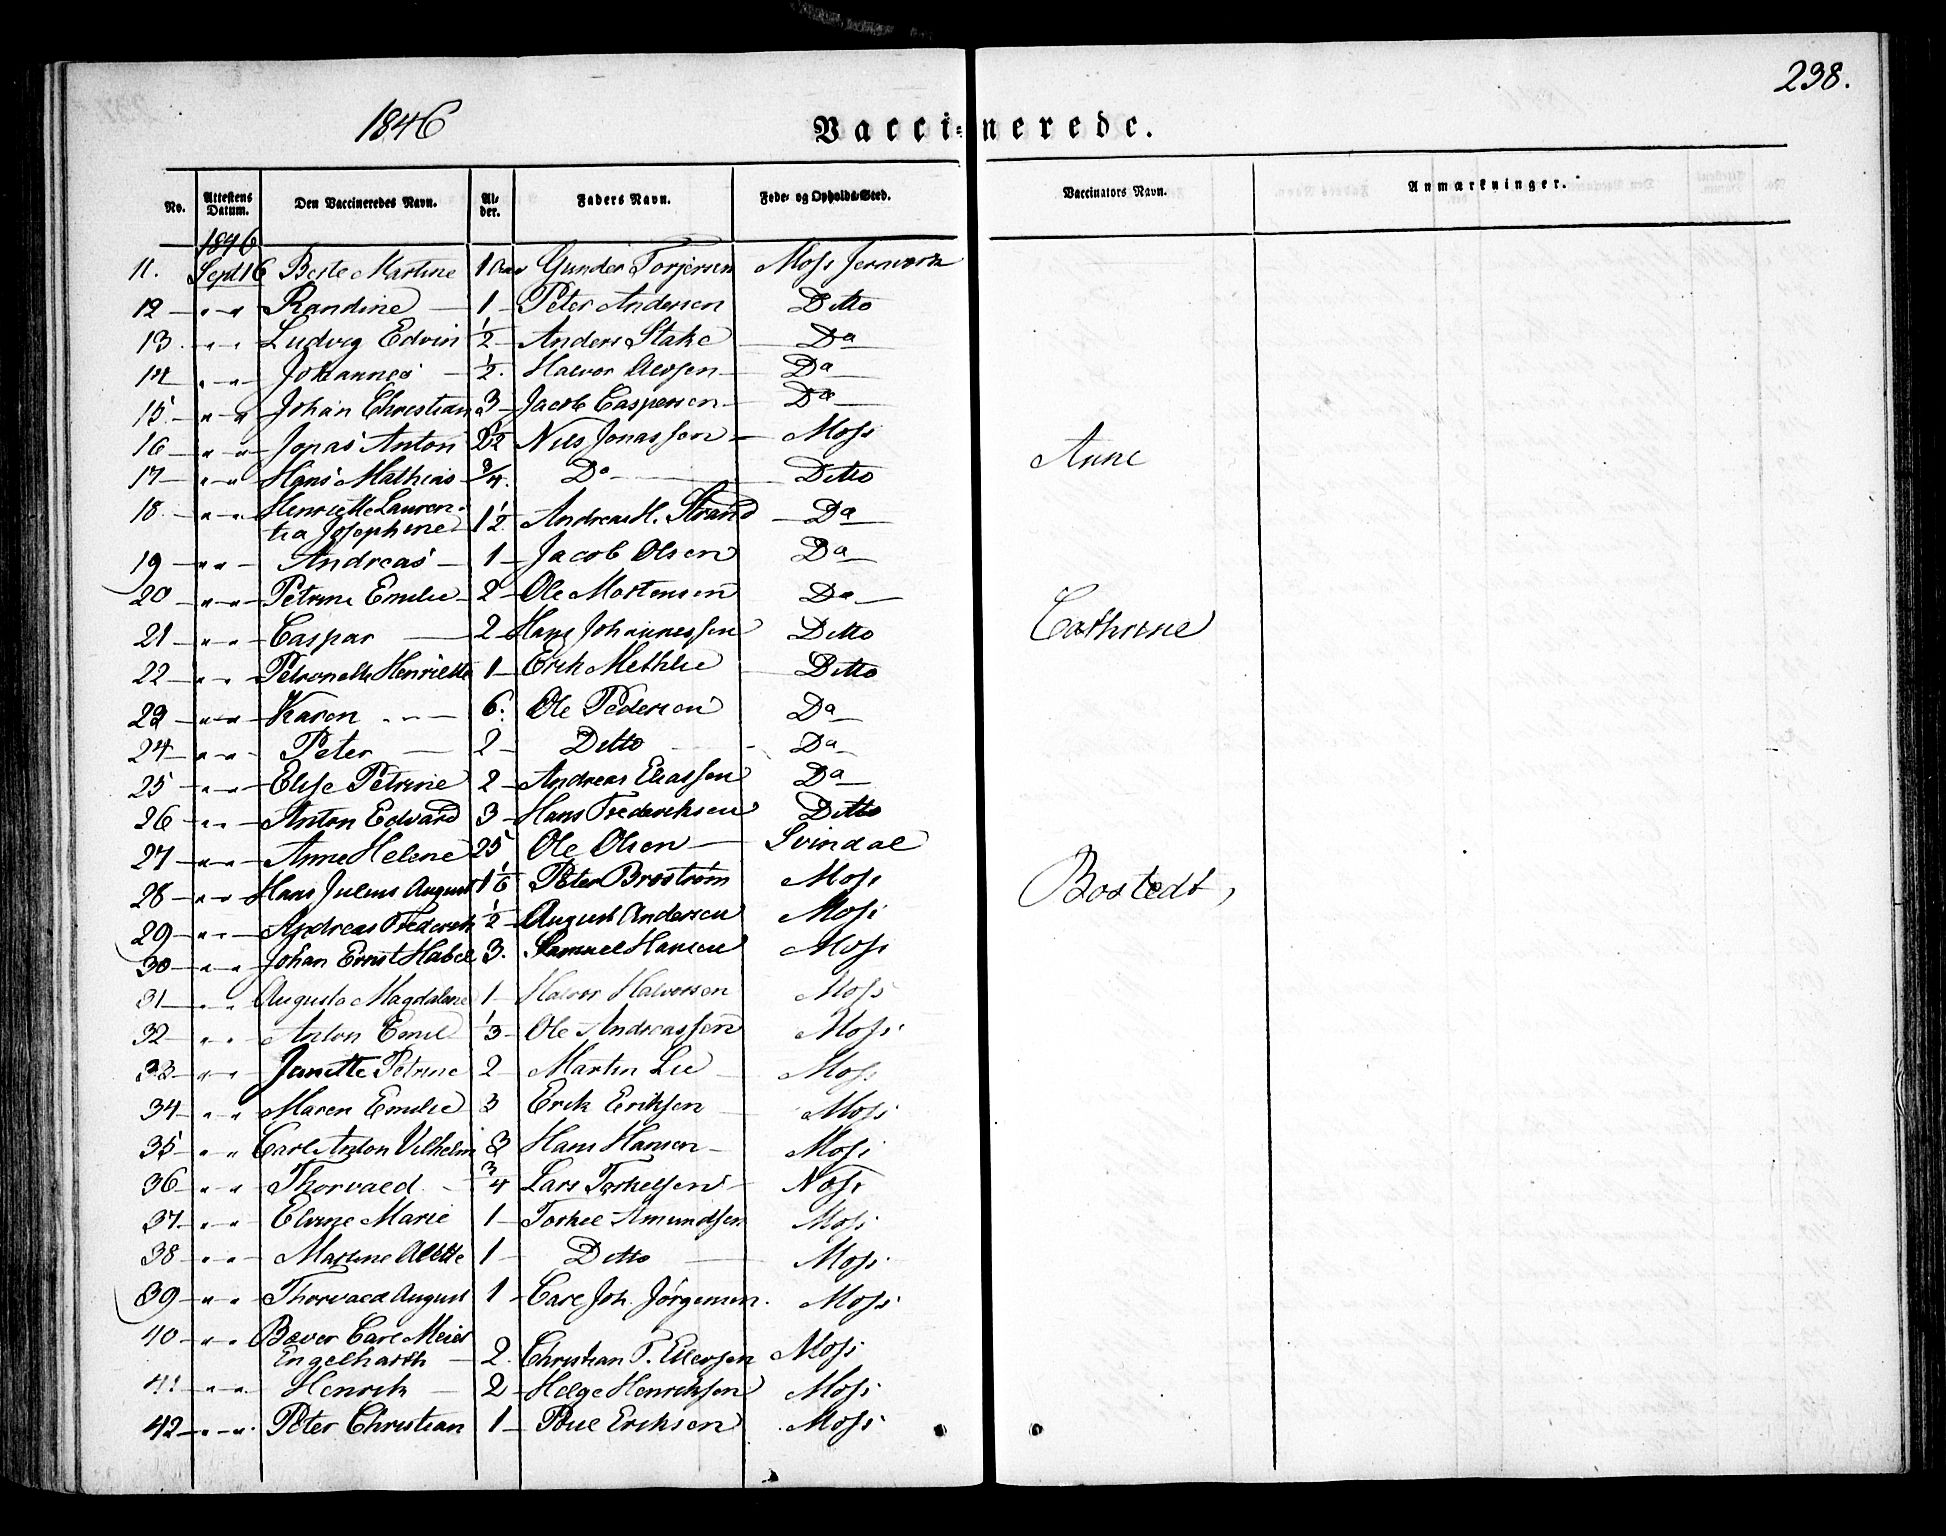 238.
1846
Vaccinerede.
No. Attestens Datum. Den Vaccineredes Navn. Alder. Faders Navn. Føde- og Opholds-Sted. Vaccinators Navn. Anmærkninger.
1846
11. Sept 16 Berte Martine 1 Gunder Torjersen Moss Jernverk
12 — " — " Randine — 1 — Peter Andersen Ditto
13. " " Ludvig Edvin 1/2 — Anders Stake — Do
14 — " — " Johannes — 1/2. Halvor — Do
15. — " — " Johan Christian 3 — Jacob Caspersen — Do
16 — " " Jonas Anton 2 1/2 Nils Jonassen — Moss
17 — " — " Hans Mathias 3/4. Do — Ditto
18. — " — " Henriette Lauren-
tia Josephine 1 1/2 Andreas H. Strand — Do Anne
19 — " " — Andreas — 1 — Jacob Olsen Do
20 — " — " — Petrine Emilie — 2 — Ole Mortensen Do
21 — " " — Caspar — 2 — Hans Johannessen Ditto Cathrine
22 — " " — Petronelle Henriette 1 — Erik Methlie — Ditto
23 — " — " — Karen — 6. Ole Pedersen Do
24 — " — " Peter — 2 — Ditto — Do
25 — " — " — Elise Petrine 2 — Andreas Eliassen Do
26 — " " — Anton Edvard 3 — Hans Frederiksen Ditto
27 — " — " — Anne Helene 25 Ole Olsen — Svindal
28 — " — " Hans Julius August 1 1/6 Peter Broström Moss Bostedt,
29 — " " — Andreas Frederik 1/2 — August Andersen Moss
30 — " — " Johan Ernst Habel 3. Samuel Hansen Moss
31 — " " Augusta Magdalene 1 — Halvor Halvorsen Moss
32 — " " Anton Emil 1/3 — Ole Andreassen Moss
33 — " — " Janette Petrine 2 — Martin Lie — Moss
34 — " " Maren Emilie 3 Erik Eriksen Moss
35 — " " Carl Anton Vilhelm 3 Hans Hansen — Moss
36 — " " Thorvald — 3/4 Lars Torkelsen — Moss
37. — " — " Elvine Marie 1 — Torkel Amundsen Moss
38 — " " Martine Alette 1 — Ditto — Moss
39 — " " Thorvald August 1 — Carl Joh. Jørgensen. Moss
40 — " — " Bæver Carl Meier
Engelharth — 2. Christian F. Eilersen Moss
41 — " " Henrik — 2 — Helge Henriksen Moss
42 — " — " Peter Christian 1 — Poul Eriksen Moss